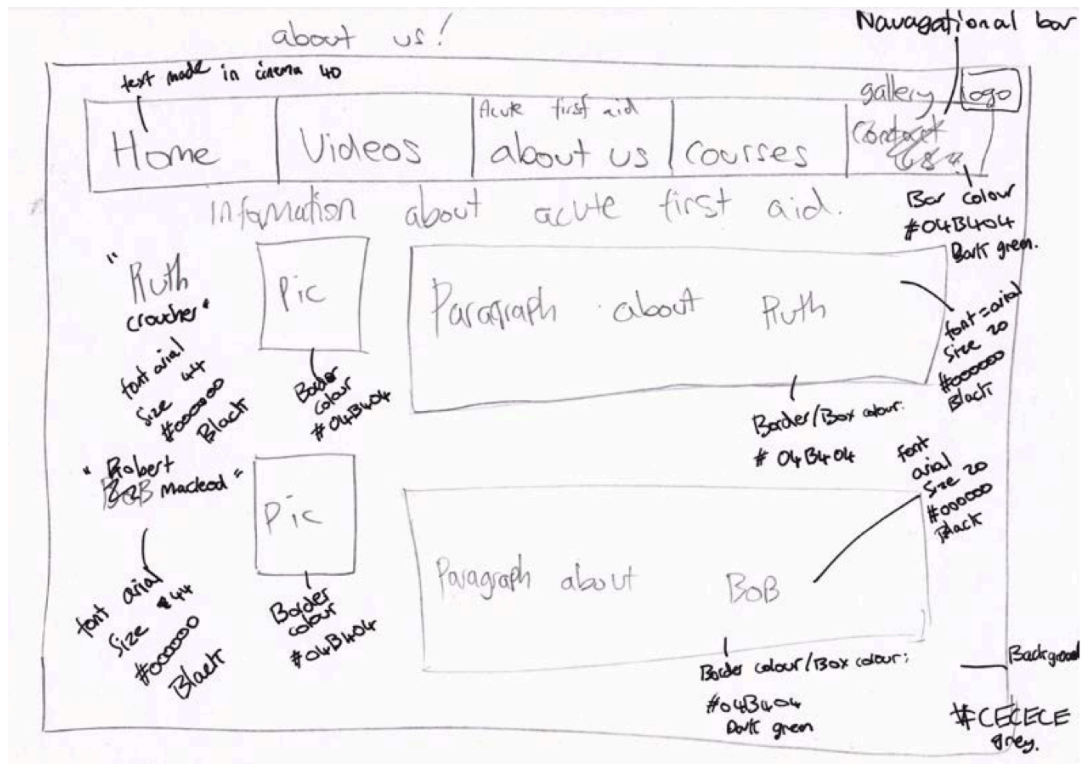 about us!
Navagational bar
text made in cinema 40
gallery
logo
Home
Videos
Acute first aid
about us
courses
Contact
Bar colour
#04B404
Dark green.
Information about acute first aid.
"Ruth
croucher"
font arial
size 44
#000000
Black
Pic
Border
colour
#04B404
Paragraph about Ruth
font = arial
Size 20
#000000
Black
Border/Box colour:
# 04B404
"Robert
BoB Macleod"
font arial
size 44
#000000
Black
Pic
Border
colour
#04B404
Paragraph about BoB
font
arial
Size 20
#000000
Black
Border colour/Box colour:
#04B404
Dark green
Background
#CECECE
grey.